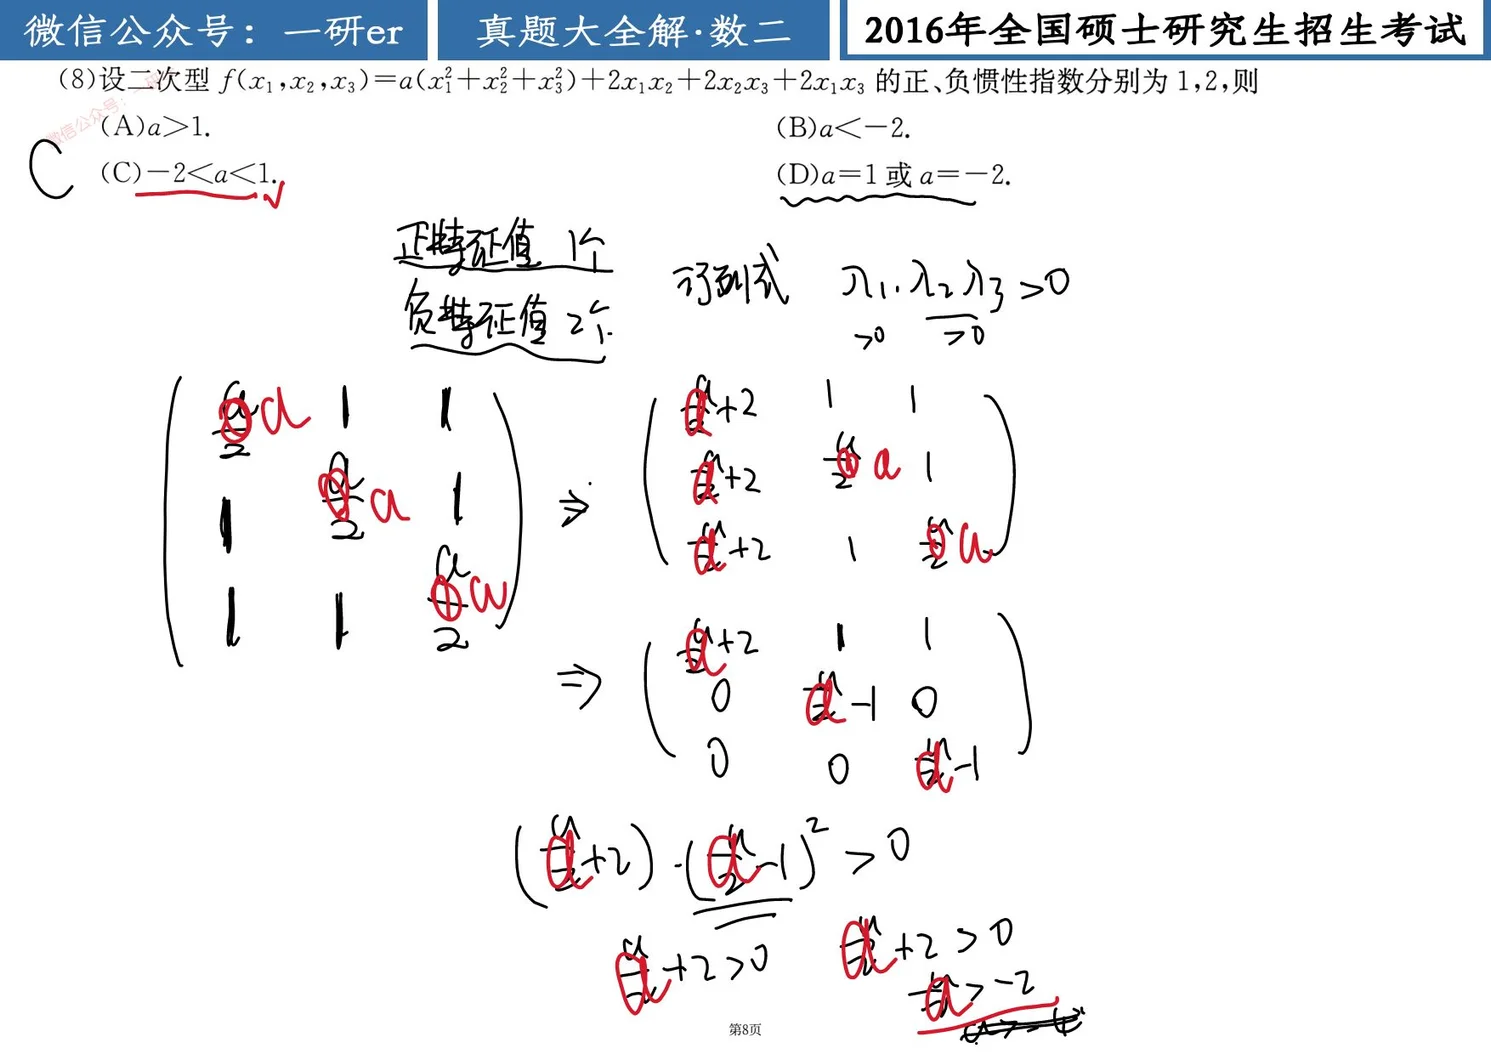 微信公众号：一研er 真题大全解·数二 2016年全国硕士研究生招生考试
(8)设二次型 f(x₁,x₂,x₃)=a(x₁²+x₂²+x₃²)+2x₁x₂+2x₂x₃+2x₁x₃ 的正、负惯性指数分别为 1,2,则
微信公众号：
(A)a>1. (B)a<-2.
C (C)-2<a<1. √ (D)a=1 或 a=-2.
正特征值 1个
负特征值 2个
行列式 λ1·λ2 λ3 >0
>0 >0
a 1 1
1 a 1
1 1 a
⇒
a+2 1 1
a+2 a 1
a+2 1 a
⇒
a+2 1 1
0 a-1 0
0 0 a-1
(a+2)·(a-1)² >0
a+2>0 a+2>0
a>-2
第8页